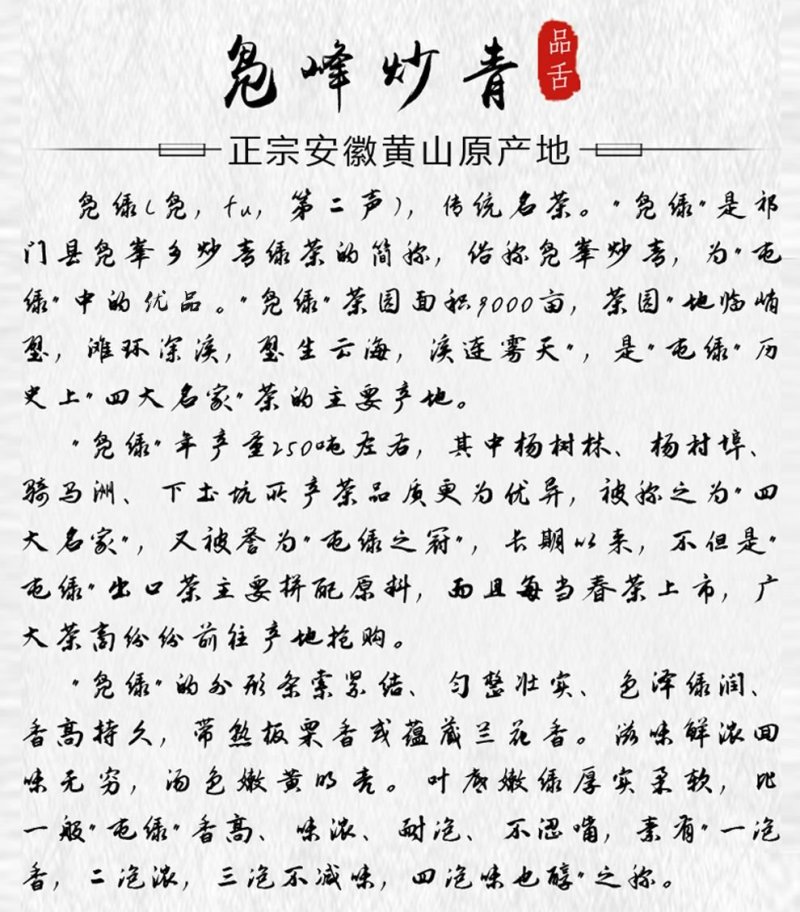 凫峰炒青
品舌
正宗安徽黄山原产地
凫绿(凫,fu,第二声),传统名茶。"凫绿"是祁
门县凫峯乡炒青绿茶的简称,俗称凫峯炒青,为"屯
绿"中的优品。"凫绿"茶园面积9000亩,茶园"地临峭
壁,滩环深溪,壁生云海,溪连雾天",是"屯绿"历
史上"四大名家"茶的主要产地。
"凫绿"年产量250吨左右,其中杨树林、杨村埠、
骑马洲、下土坑所产茶品质更为优异,被称之为"四
大名家",又被誉为"屯绿之冠",长期以来,不但是"
屯绿"出口茶主要拼配原料,而且每当春茶上市,广
大茶商纷纷前往产地抢购。
"凫绿"的外形条索紧结、匀整壮实、色泽绿润、
香高持久,带熟板栗香或蕴藏兰花香。滋味鲜浓回
味无穷,汤色嫩黄明亮。叶底嫩绿厚实柔软,比
一般"屯绿"香高、味浓、耐泡、不涩嘴,素有"一泡
香,二泡浓,三泡不减味,四泡味也醇"之称。